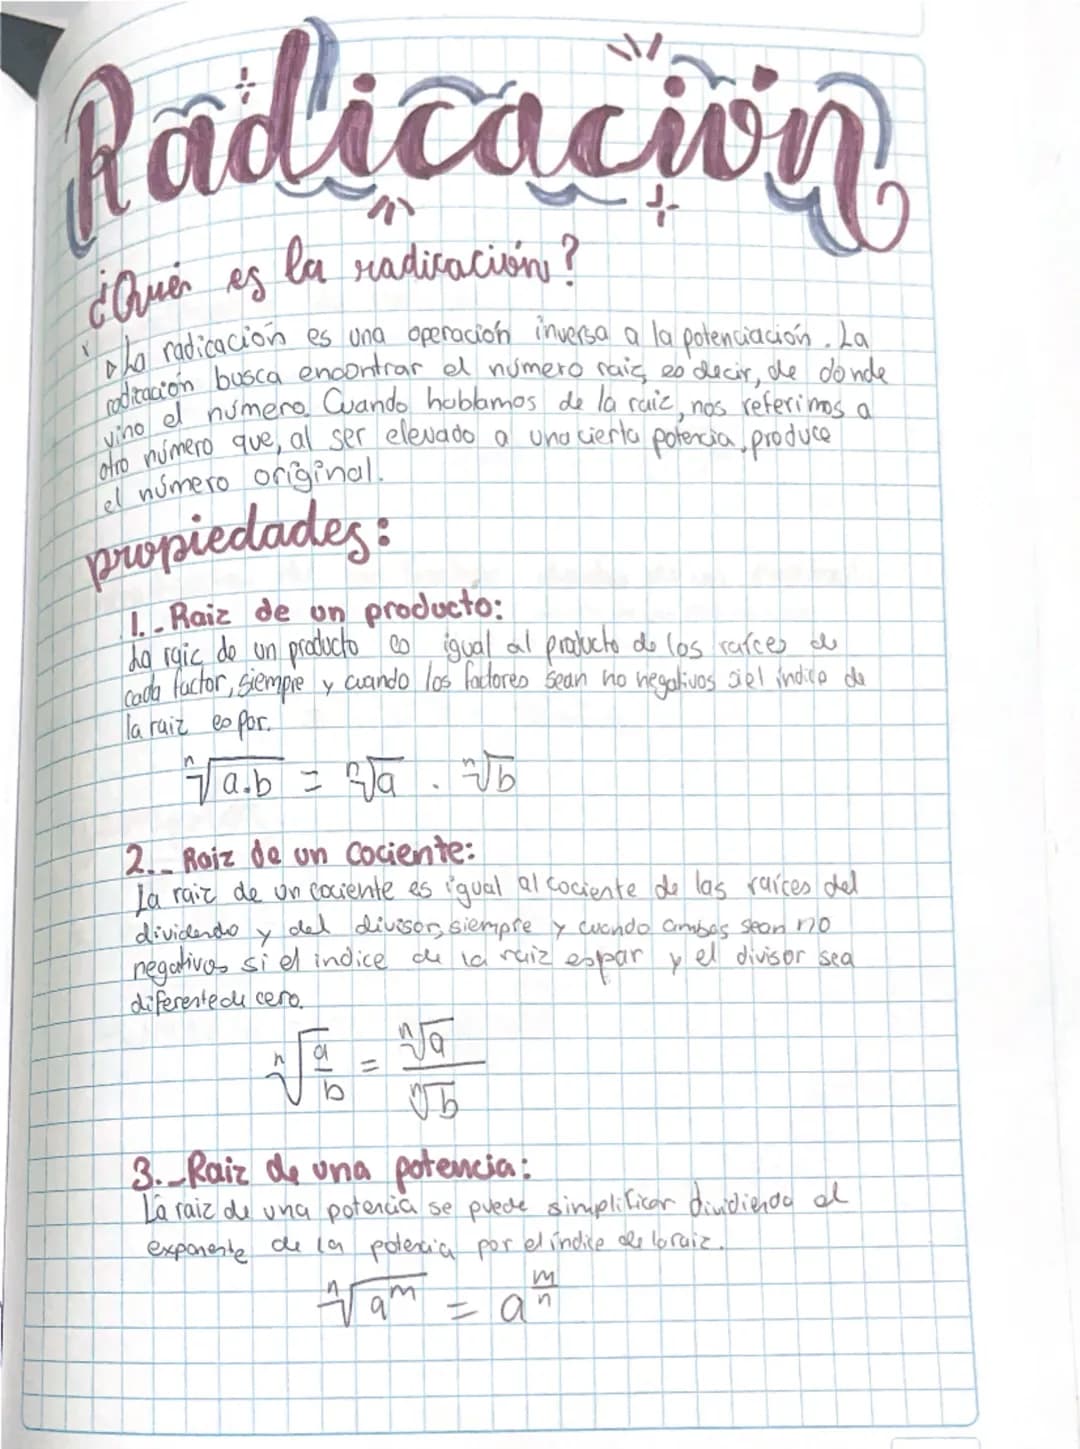 Radicación
¿Qué es la radicación?
La radicación es una operación inversa a la potenciación. La
radicación busca encontrar el número raiz, es decir, de dónde
vino el número. Cuando hablamos de la raiz, nos referimos a
otro número que, al ser elevado a una cierta potencia, produce
el número original.
propiedades:
1.- Raiz de un producto:
La raiz de un producto es igual al producto de las raíces de
cada factor, siempre y cuando los factores sean no negativos si el indice de
la raiz es par.
ⁿ√a.b = ⁿ√a . ⁿ√b
2.- Raiz de un cociente:
La raiz de un cociente es igual al cociente de las raíces del
dividendo y del divisor, siempre y cuando ambos sean no
negativos si el indice de la raiz es par y el divisor sea
diferente de cero.
ⁿ√(a/b) = ⁿ√a / ⁿ√b
3.- Raiz de una potencia:
La raiz de una potencia se puede simplificar dividiendo el
exponente de la potencia por el índice de la raiz.
ⁿ√a^m = a^(m/n)